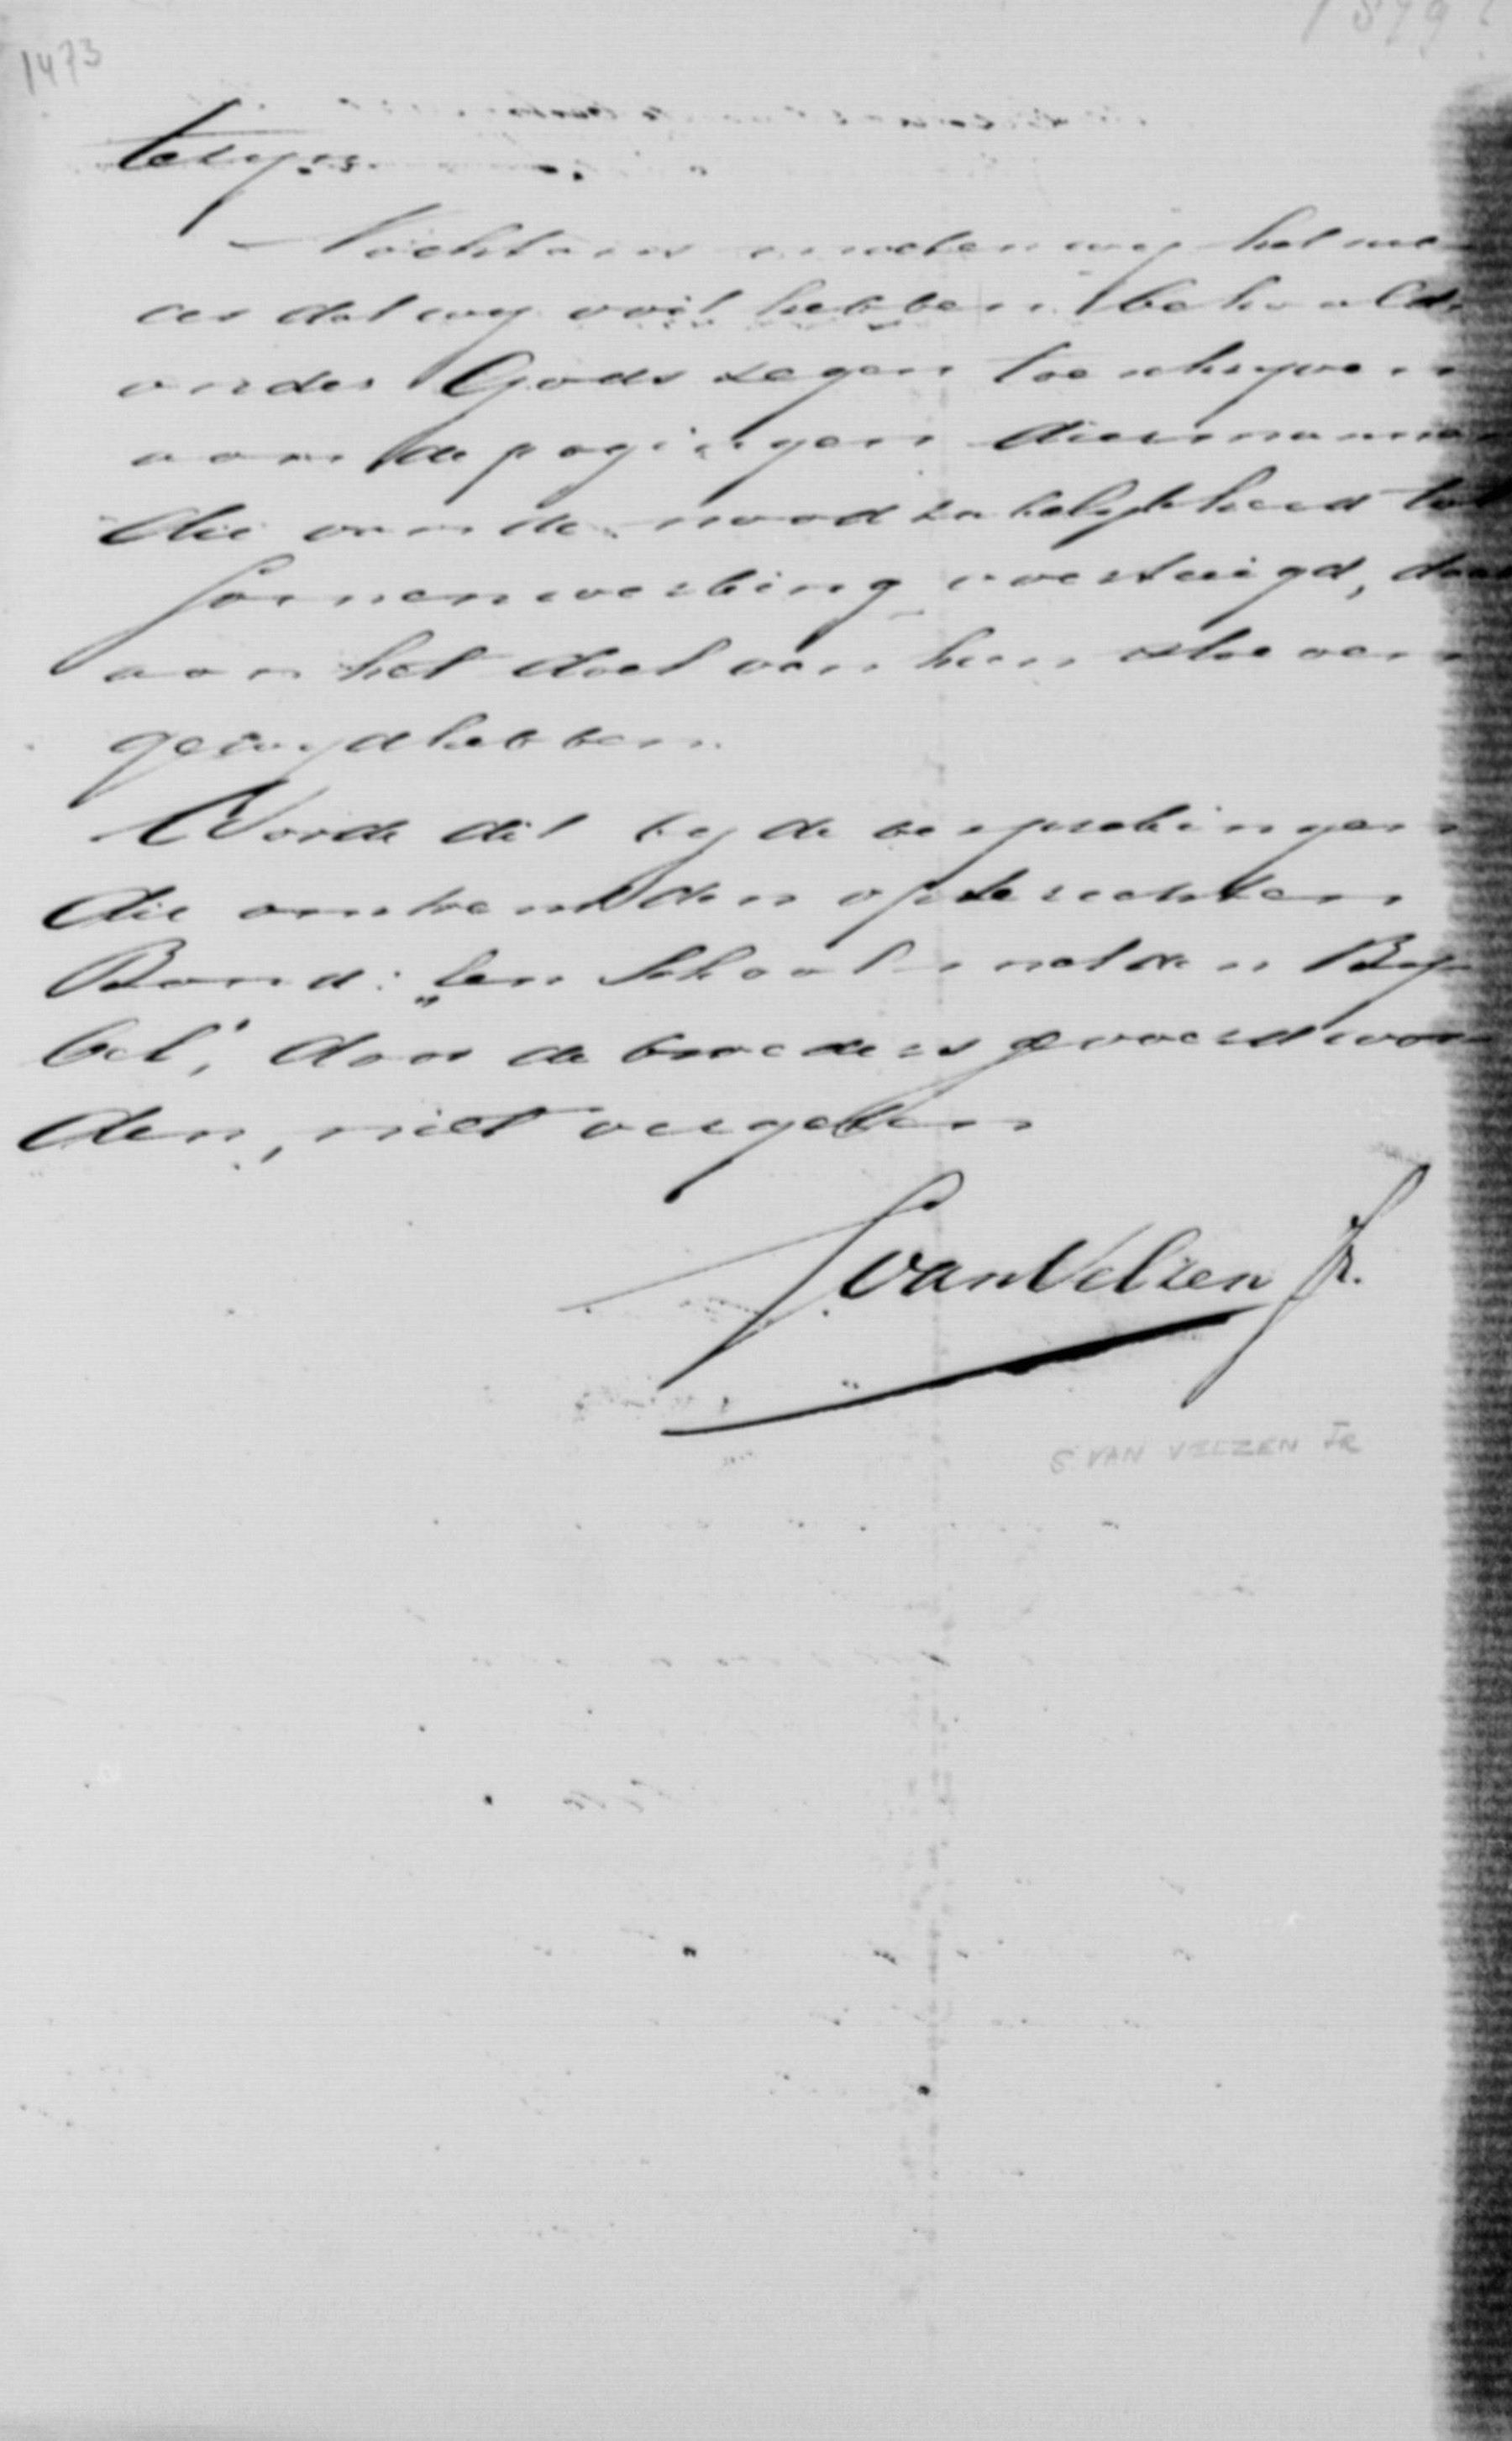 1473
1879
terys.
Nochtans moeten wy het suc-
ces dat wy ooit hebben behaald,
onder Gods zegen toeschryven
aan de pogingen dier mannen
die van de noodzakelykheid tot
samenwerking overtuigd, daar
aan het doel van hun streven
gewyd hebben.
Worde dit by de besprekingen
die omtrent den op te rechten
Bond: „Een School met den By-
bel," door de broeders gevoerd wor-
den, niet vergeten
S van Velzen Jr.
S VAN VELZEN JR